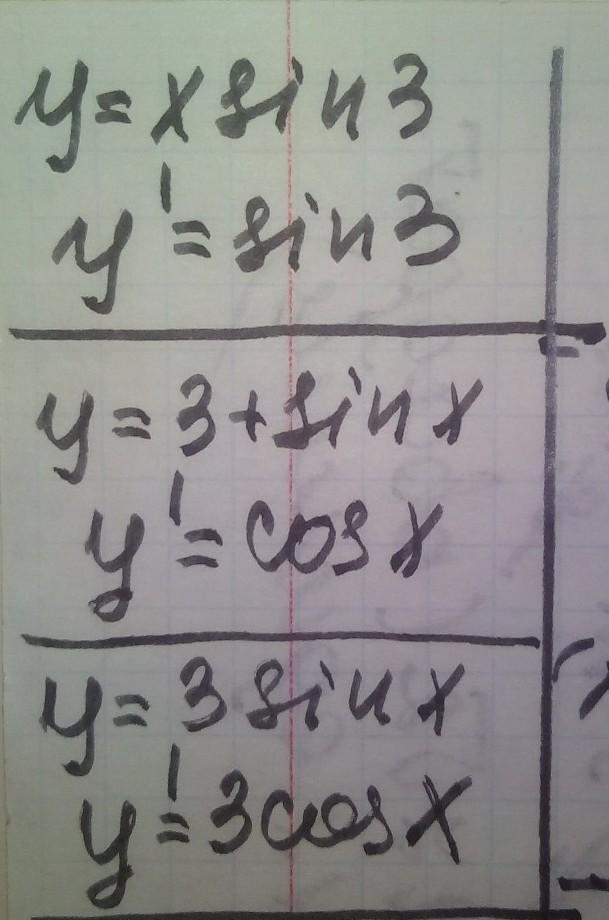 y = x sin 3
y' = sin 3
y = 3 + sin x
y' = cos x
y = 3 sin x
y' = 3 cos x